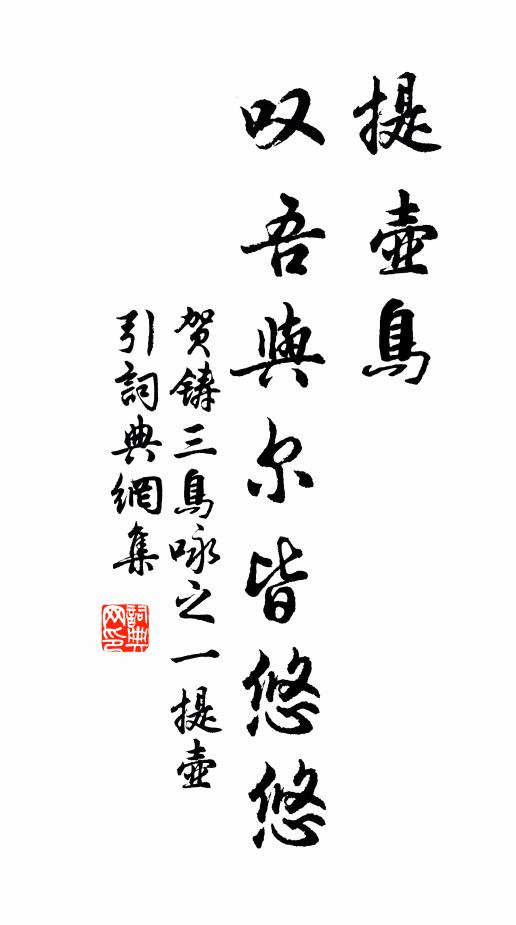 提壺鳥
叹吾與尔皆悠悠
贺鑄三鳥咏之一提壺
引詞典網集
詞典
网印